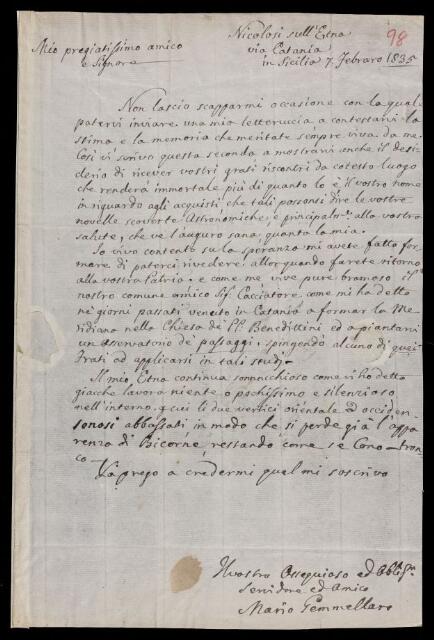 Nicolosi sull'Etna
98
via Catania
Mio pregiatissimo amico
e Signore
in Sicilia 7. Febraro 1835
Non lascio scapparmi occasione con la qual
potervi inviare una mia letteruccia a contestarvi la
stima e la memoria che meritate sempre viva da me.
Così vi scriva questa seconda a mostrarvi anche il desi-
derio di ricever vostri grati riscontri da cotesto luogo
che renderà immortale più di quanto lo è il vostro nome
in riguardo agli acquisti che tali possonsi dire le vostre
novelle scoverte Astronomiche; e principalm.e alla vostra
salute, che ve l'auguro sana quanto la mia.
Io vivo contento su la speranza mi avete fatto for-
mare di poterci rivedere allorquando farete ritorno
alla vostra Patria. e come me vive pure bramoso il
nostro comune amico Sig. Cacciatore, come mi ha detto
ne' giorni passati venuto in Catania a formar la Me-
ridiana nella Chiesa de' PP. Benedittini ed a piantarvi
un osservatorio de' passaggi, spingendo alcuno di quei
Frati ad applicarsi in tali studj.
Il mio Etna continua sonnacchioso come vi ho detto
giacchè lavora niente o pochissimo e silenzioso
nell'interno, e cui li due vertici orientale ed occiden-
sonosi abbassati in modo che si perde già l'appa
renza di Bicorne, restando come se Cono-tron-
co
Vi prego a credermi qual mi soscrivo
Il vostro Ossequioso ed Obblig.
Servidore ed Amico
Mario Gemmellaro